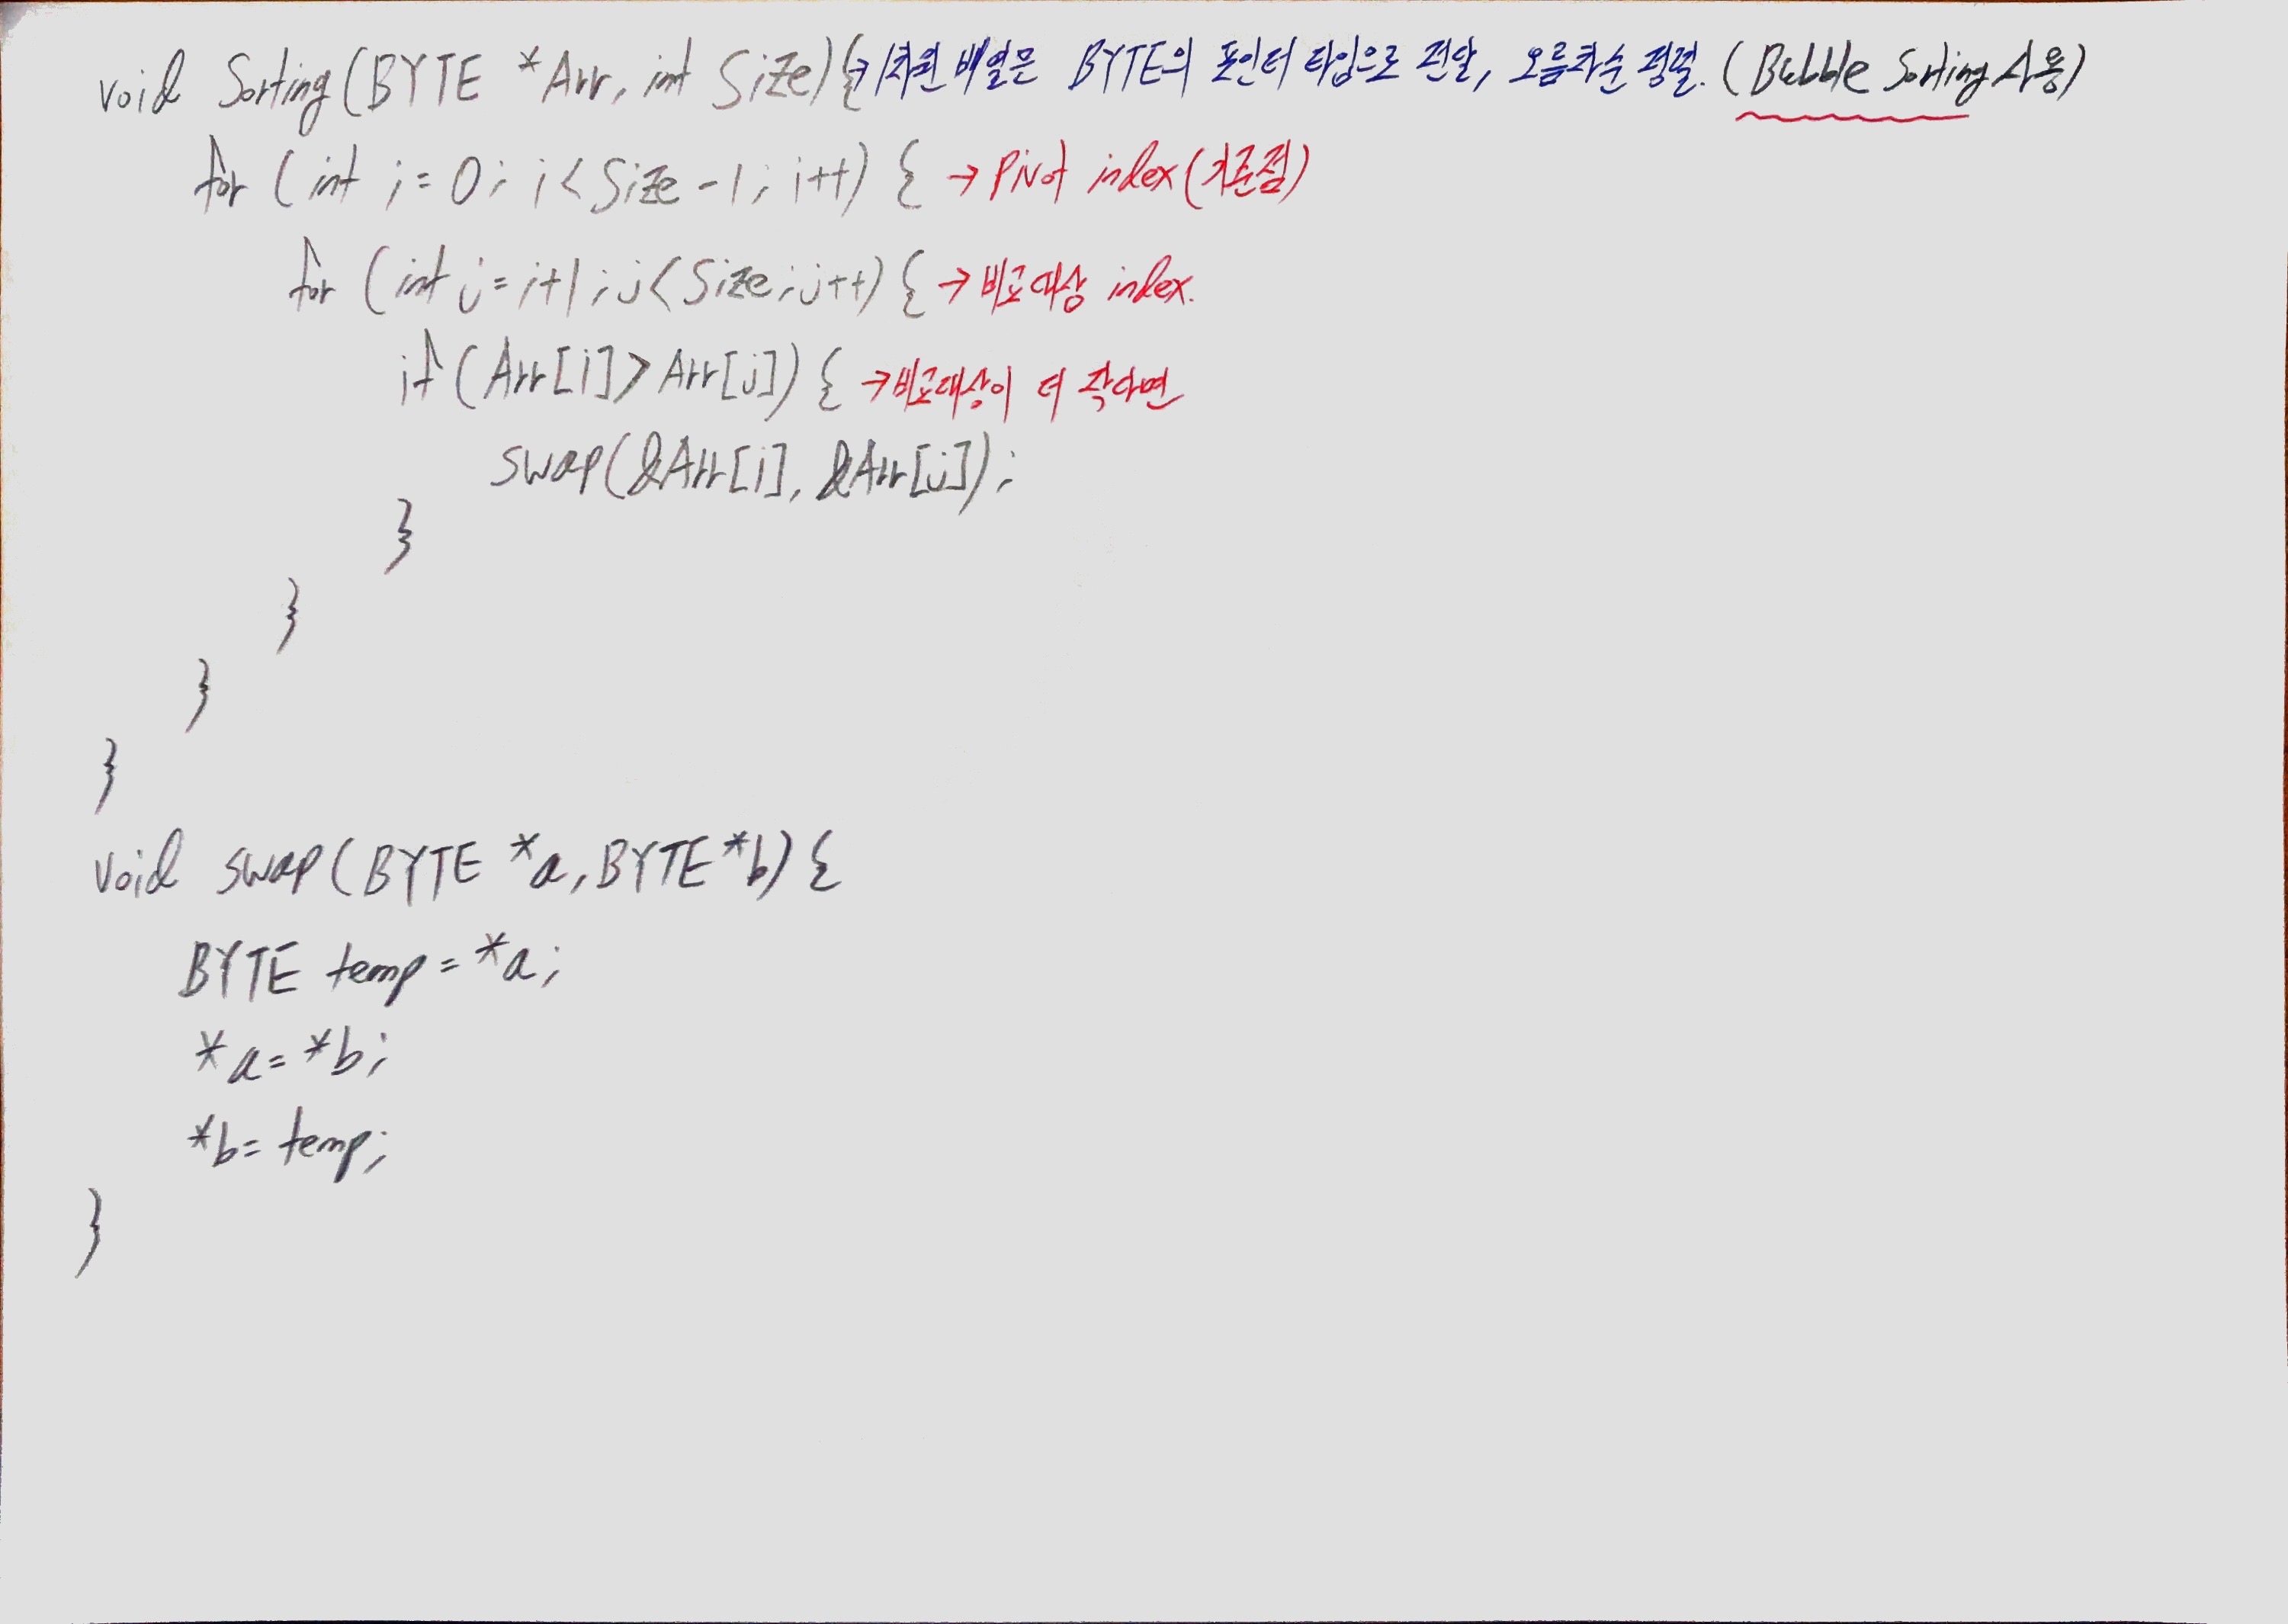 void Sorting(BYTE *Arr, int Size){→1차원 배열은 BYTE의 포인터 타입으로 전달, 오름차순 정렬. (Bubble Sorting 사용)
for (int i=0; i<Size-1; i++) { → Pivot index(기준점)
for (int j=i+1; j<Size; j++) { → 비교대상 index.
if (Arr[i]>Arr[j]) { →비교대상이 더 작다면
swap(&Arr[i], &Arr[j]);
}
}
}
}
void swap(BYTE *a, BYTE *b) {
BYTE temp=*a;
*a=*b;
*b=temp;
}